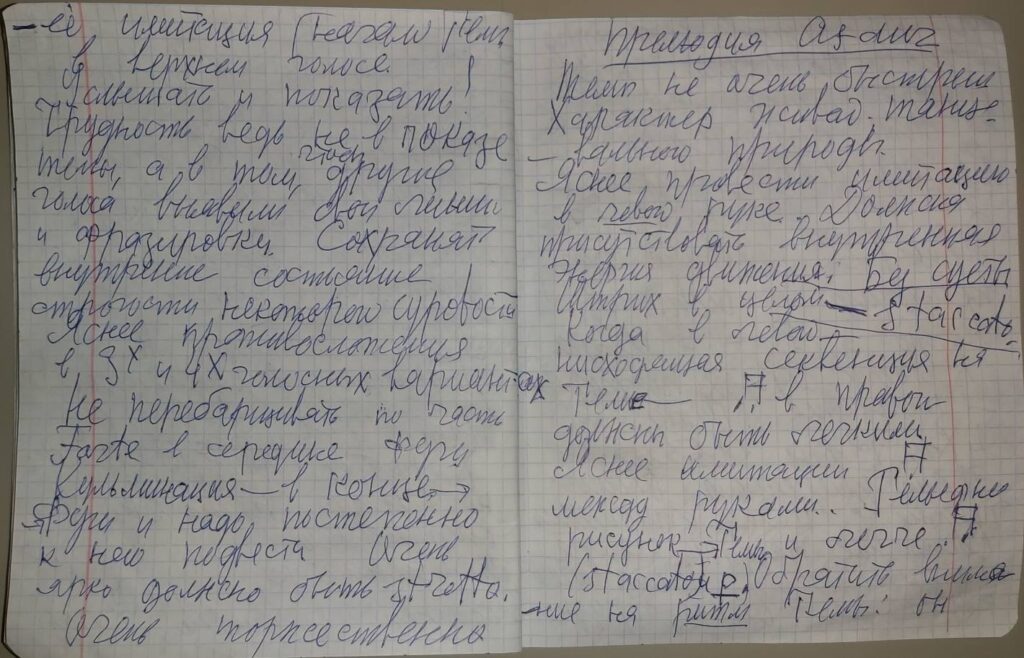 - её имитация (начало темы
в верхнем голосе.
Услышать и показать!
Трудность ведь не в показе
темы, а в том, чтобы другие
голоса выявили свои линии
и фразировки. Сохранять
внутренне состояние
строгости некоторого суровости!
Яснее противосложения
в 3х и 4х голосных вариантах
Не перебарщивать по части
Forte в середине фуги
Кульминация — в конце →
Фуги и надо постепенно
к ней подвести Очень
ярко должно быть stretta.
Очень торжественно
Прелюдия As dur
Темп не очень быстрый
Характер живой, танце-
- вального природы.
Яснее провести имитацию
в левой руке. Должна
присутствовать внутренняя
энергия движения. Без суеты
Штрих в целом — staccato.
Когда в левой
нисходящая секвенция на
теме — в правой
должны быть легкими
Яснее имитации
между руками.
рисунок темы и легче
(staccato Обратить внима
- ние на ритм темы: он